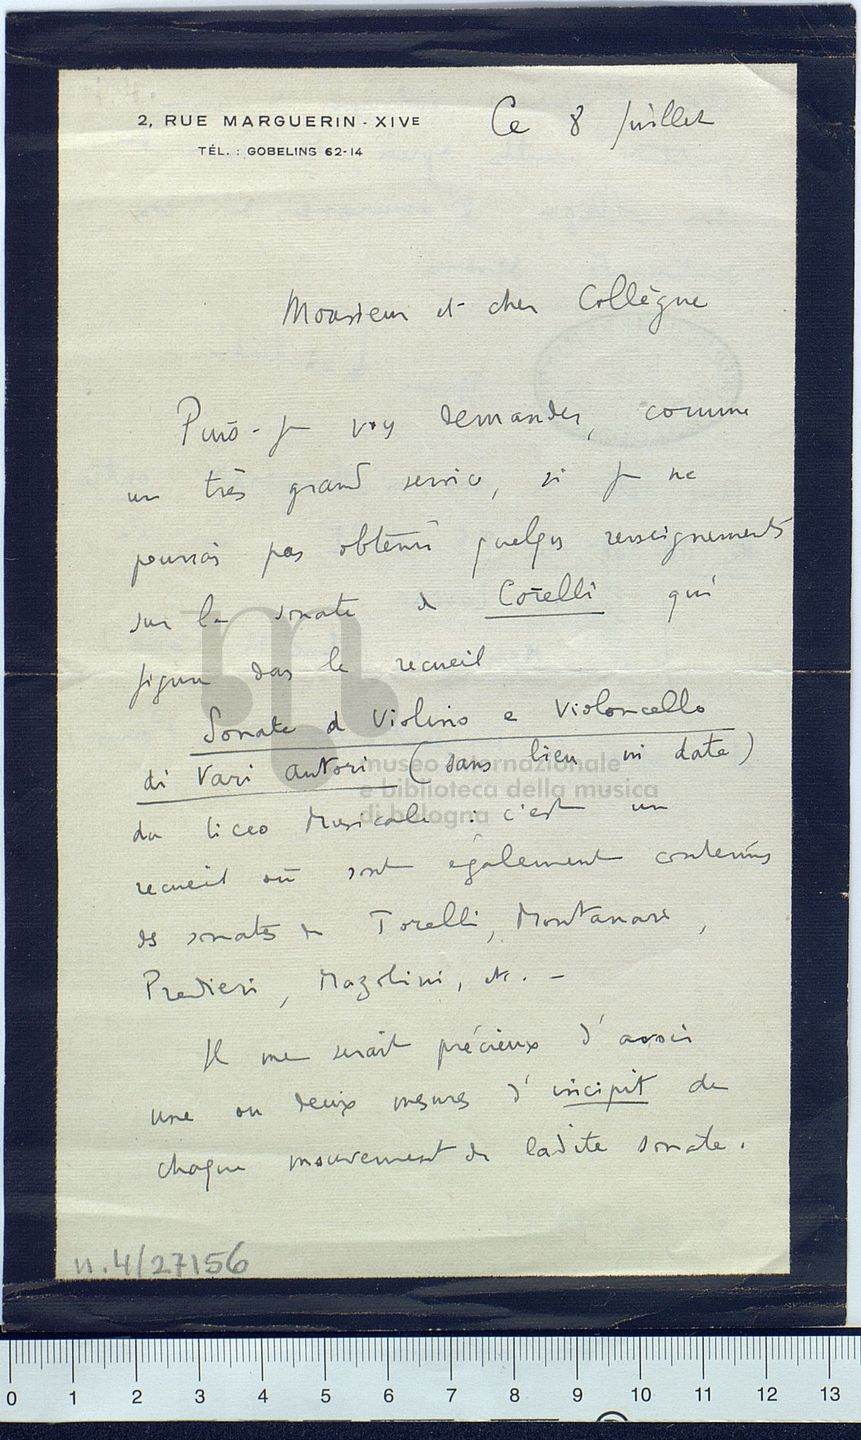 2, RUE MARGUERIN - XIVE
TÉL. : GOBELINS 62-14
Ce 8 Juillet
Monsieur et cher Collègue
Puis-je vous demander, comme
un très grand service, si je ne
pourrais pas obtenir quelques renseignements
sur la sonate de Corelli qui
figure dans le recueil
Sonate a Violino e Violoncello
di Vari autori (sans lieu ni date)
du liceo Musicale : c'est un
recueil où sont également contenues
des sonates de Torelli, Montanari,
Predieri, Mazolini, etc. -
Il me serait précieux d'avoir
une ou deux mesures d'incipit de
chaque mouvement de ladite sonate.
museo internazionale
e biblioteca della musica
di bologna
n.4/27156
0 1 2 3 4 5 6 7 8 9 10 11 12 13